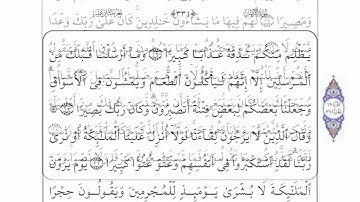 وَمَصِيرًا لَّهُمْ فِيهَا مَا يَشَآءُونَ خَٰلِدِينَ كَانَ عَلَىٰ رَبِّكَ وَعْدًا
يَظْلِم مِّنكُمْ نُذِقْهُ عَذَابًا كَبِيرًا وَمَآ أَرْسَلْنَا قَبْلَكَ مِنَ
ٱلْمُرْسَلِينَ إِلَّآ إِنَّهُمْ لَيَأْكُلُونَ ٱلطَّعَامَ وَيَمْشُونَ فِى ٱلْأَسْوَاقِ
وَجَعَلْنَا بَعْضَكُمْ لِبَعْضٍ فِتْنَةً أَتَصْبِرُونَ وَكَانَ رَبُّكَ بَصِيرًا
وَقَالَ ٱلَّذِينَ لَا يَرْجُونَ لِقَآءَنَا لَوْلَآ أُنزِلَ عَلَيْنَا ٱلْمَلَٰٓئِكَةُ أَوْ نَرَىٰ
رَبَّنَا لَقَدِ ٱسْتَكْبَرُوا۟ فِىٓ أَنفُسِهِمْ وَعَتَوْ عُتُوًّا كَبِيرًا يَوْمَ يَرَوْنَ
ٱلْمَلَٰٓئِكَةَ لَا بُشْرَىٰ يَوْمَئِذٍ لِّلْمُجْرِمِينَ وَيَقُولُونَ حِجْرًا